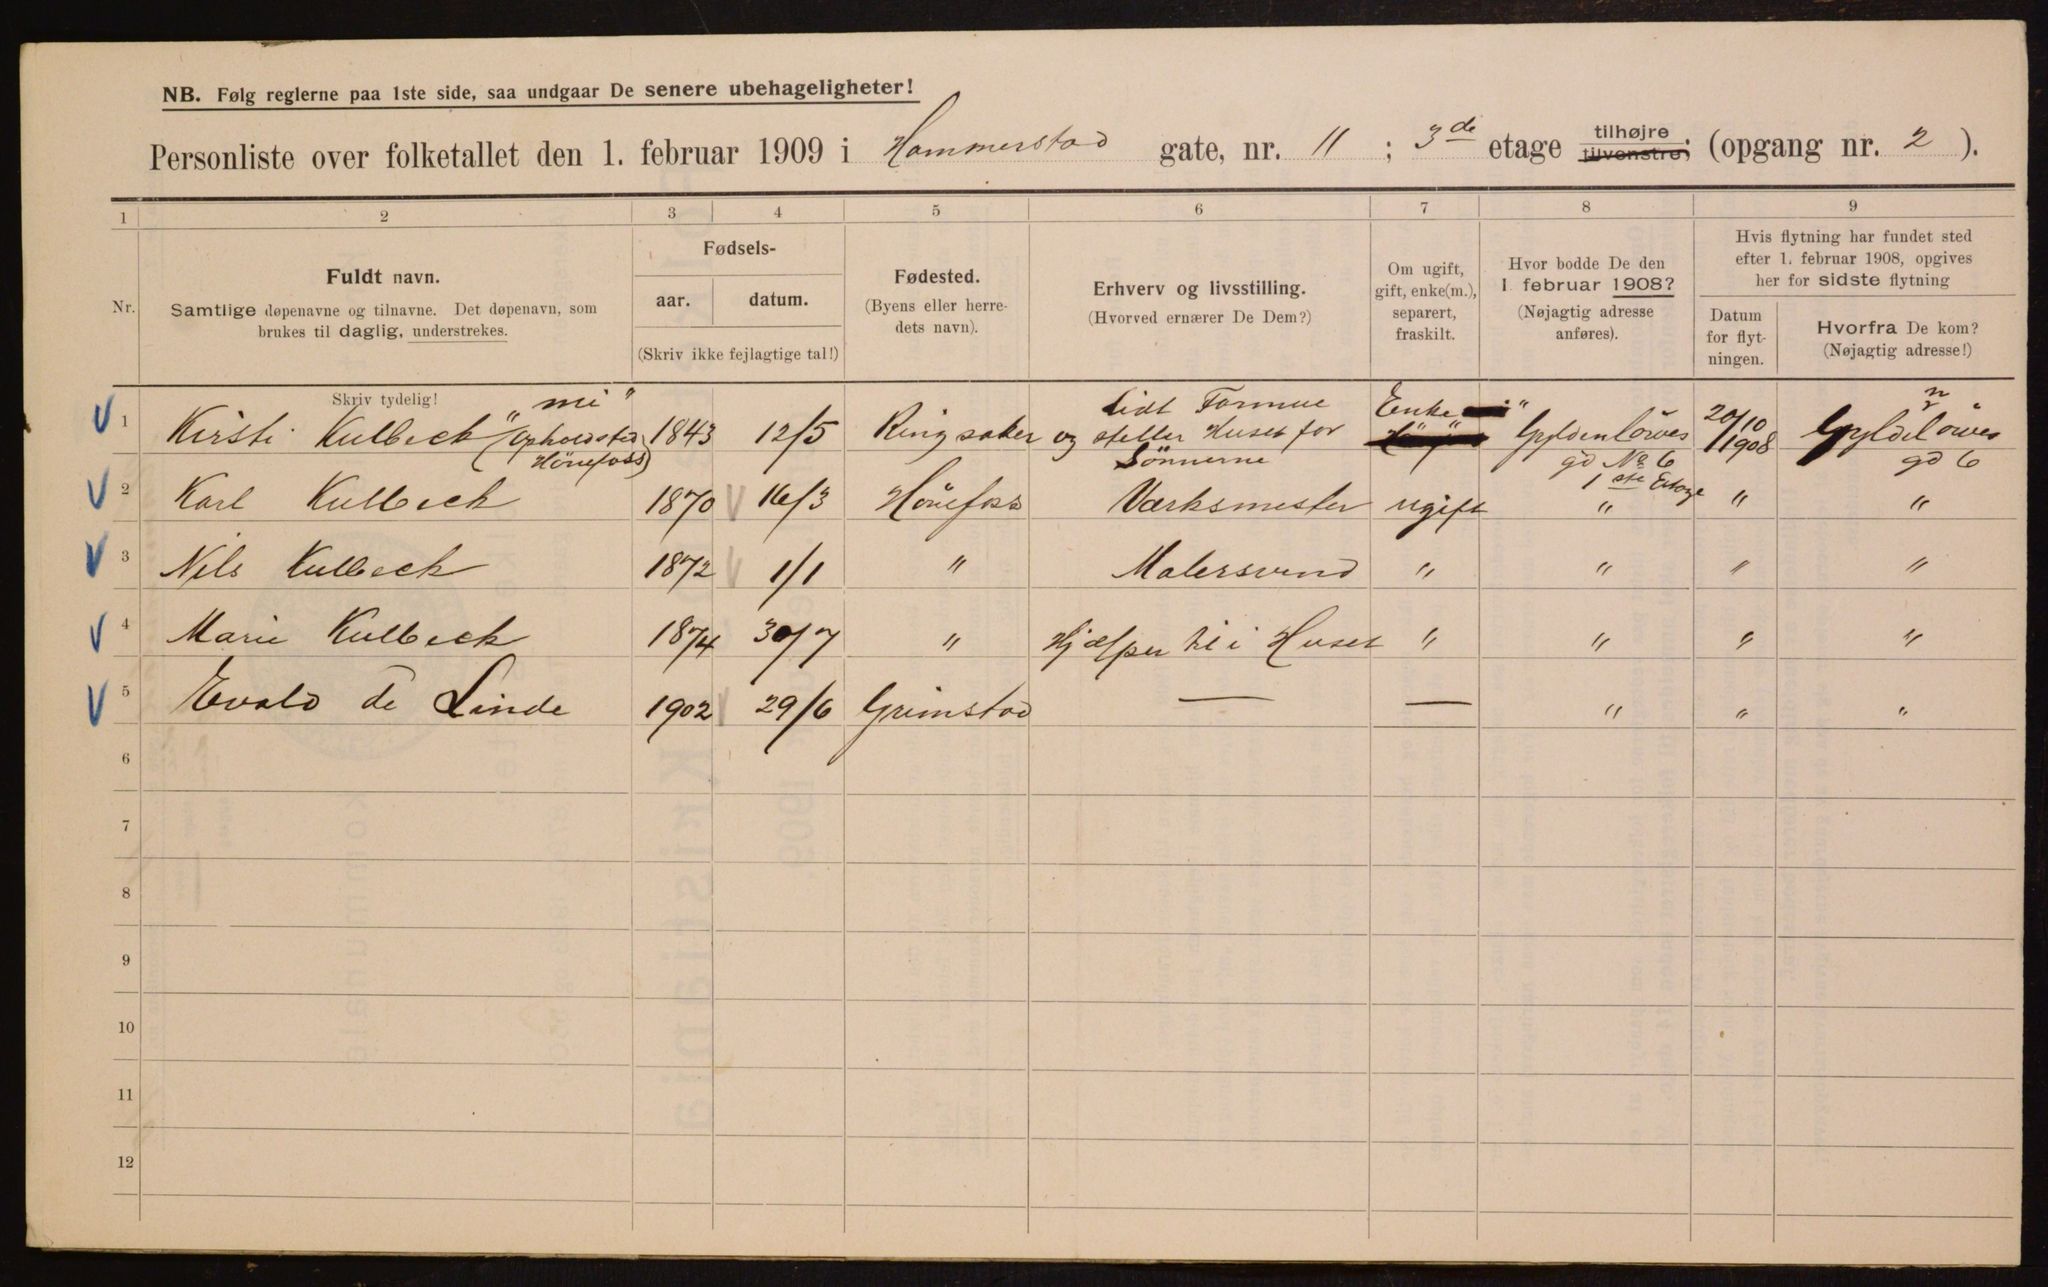 NB. Følg reglerne paa 1ste side, saa undgaar De senere ubehageligheter!
Personliste over folketallet den 1. februar 1909 i Hammerstad gate, nr. 11 ; 3de etage tilhøjre tilvenstre; (opgang nr. 2 ).
1 2 3 4 5 6 7 8 9
Nr.
Fuldt navn.
Samtlige døpenavne og tilnavne. Det døpenavn, som
brukes til daglig, understrekes.
Skriv tydelig!
Fødsels-
aar. datum.
(Skriv ikke fejlagtige tal!)
Fødested.
(Byens eller herre-
dets navn).
Erhverv og livsstilling.
(Hvorved ernærer De Dem?)
Om ugift,
gift, enke(m.),
separert,
fraskilt.
Hvor bodde De den
1 februar 1908?
(Nøjagtig adresse
anføres).
Hvis flytning har fundet sted
efter 1. februar 1908, opgives
her for sidste flytning
Datum
for flyt-
ningen.
Hvorfra De kom?
(Nøjagtig adresse!)
1 Kirsti Kulbeck "mi" (Opholdsted Hönefoss) 1843 12/5 Ringsaker lidt Formue og steller Huset for Sönnerne Enke Gyldenlöves gd No 6 1ste Etage 20/10 1908 Gyldenlöves gd 6
2 Karl Kulbeck 1870 16/3 Hönefoss Værksmester ugift " " "
3 Nils Kulbeck 1872 1/1 " Malersvend " " " "
4 Marie Kulbeck 1874 30/7 " Hjælper til i Huset " " " "
5 Evald de Linde 1902 29/6 Grimstad — — " " "
6
7
8
9
10
11
12